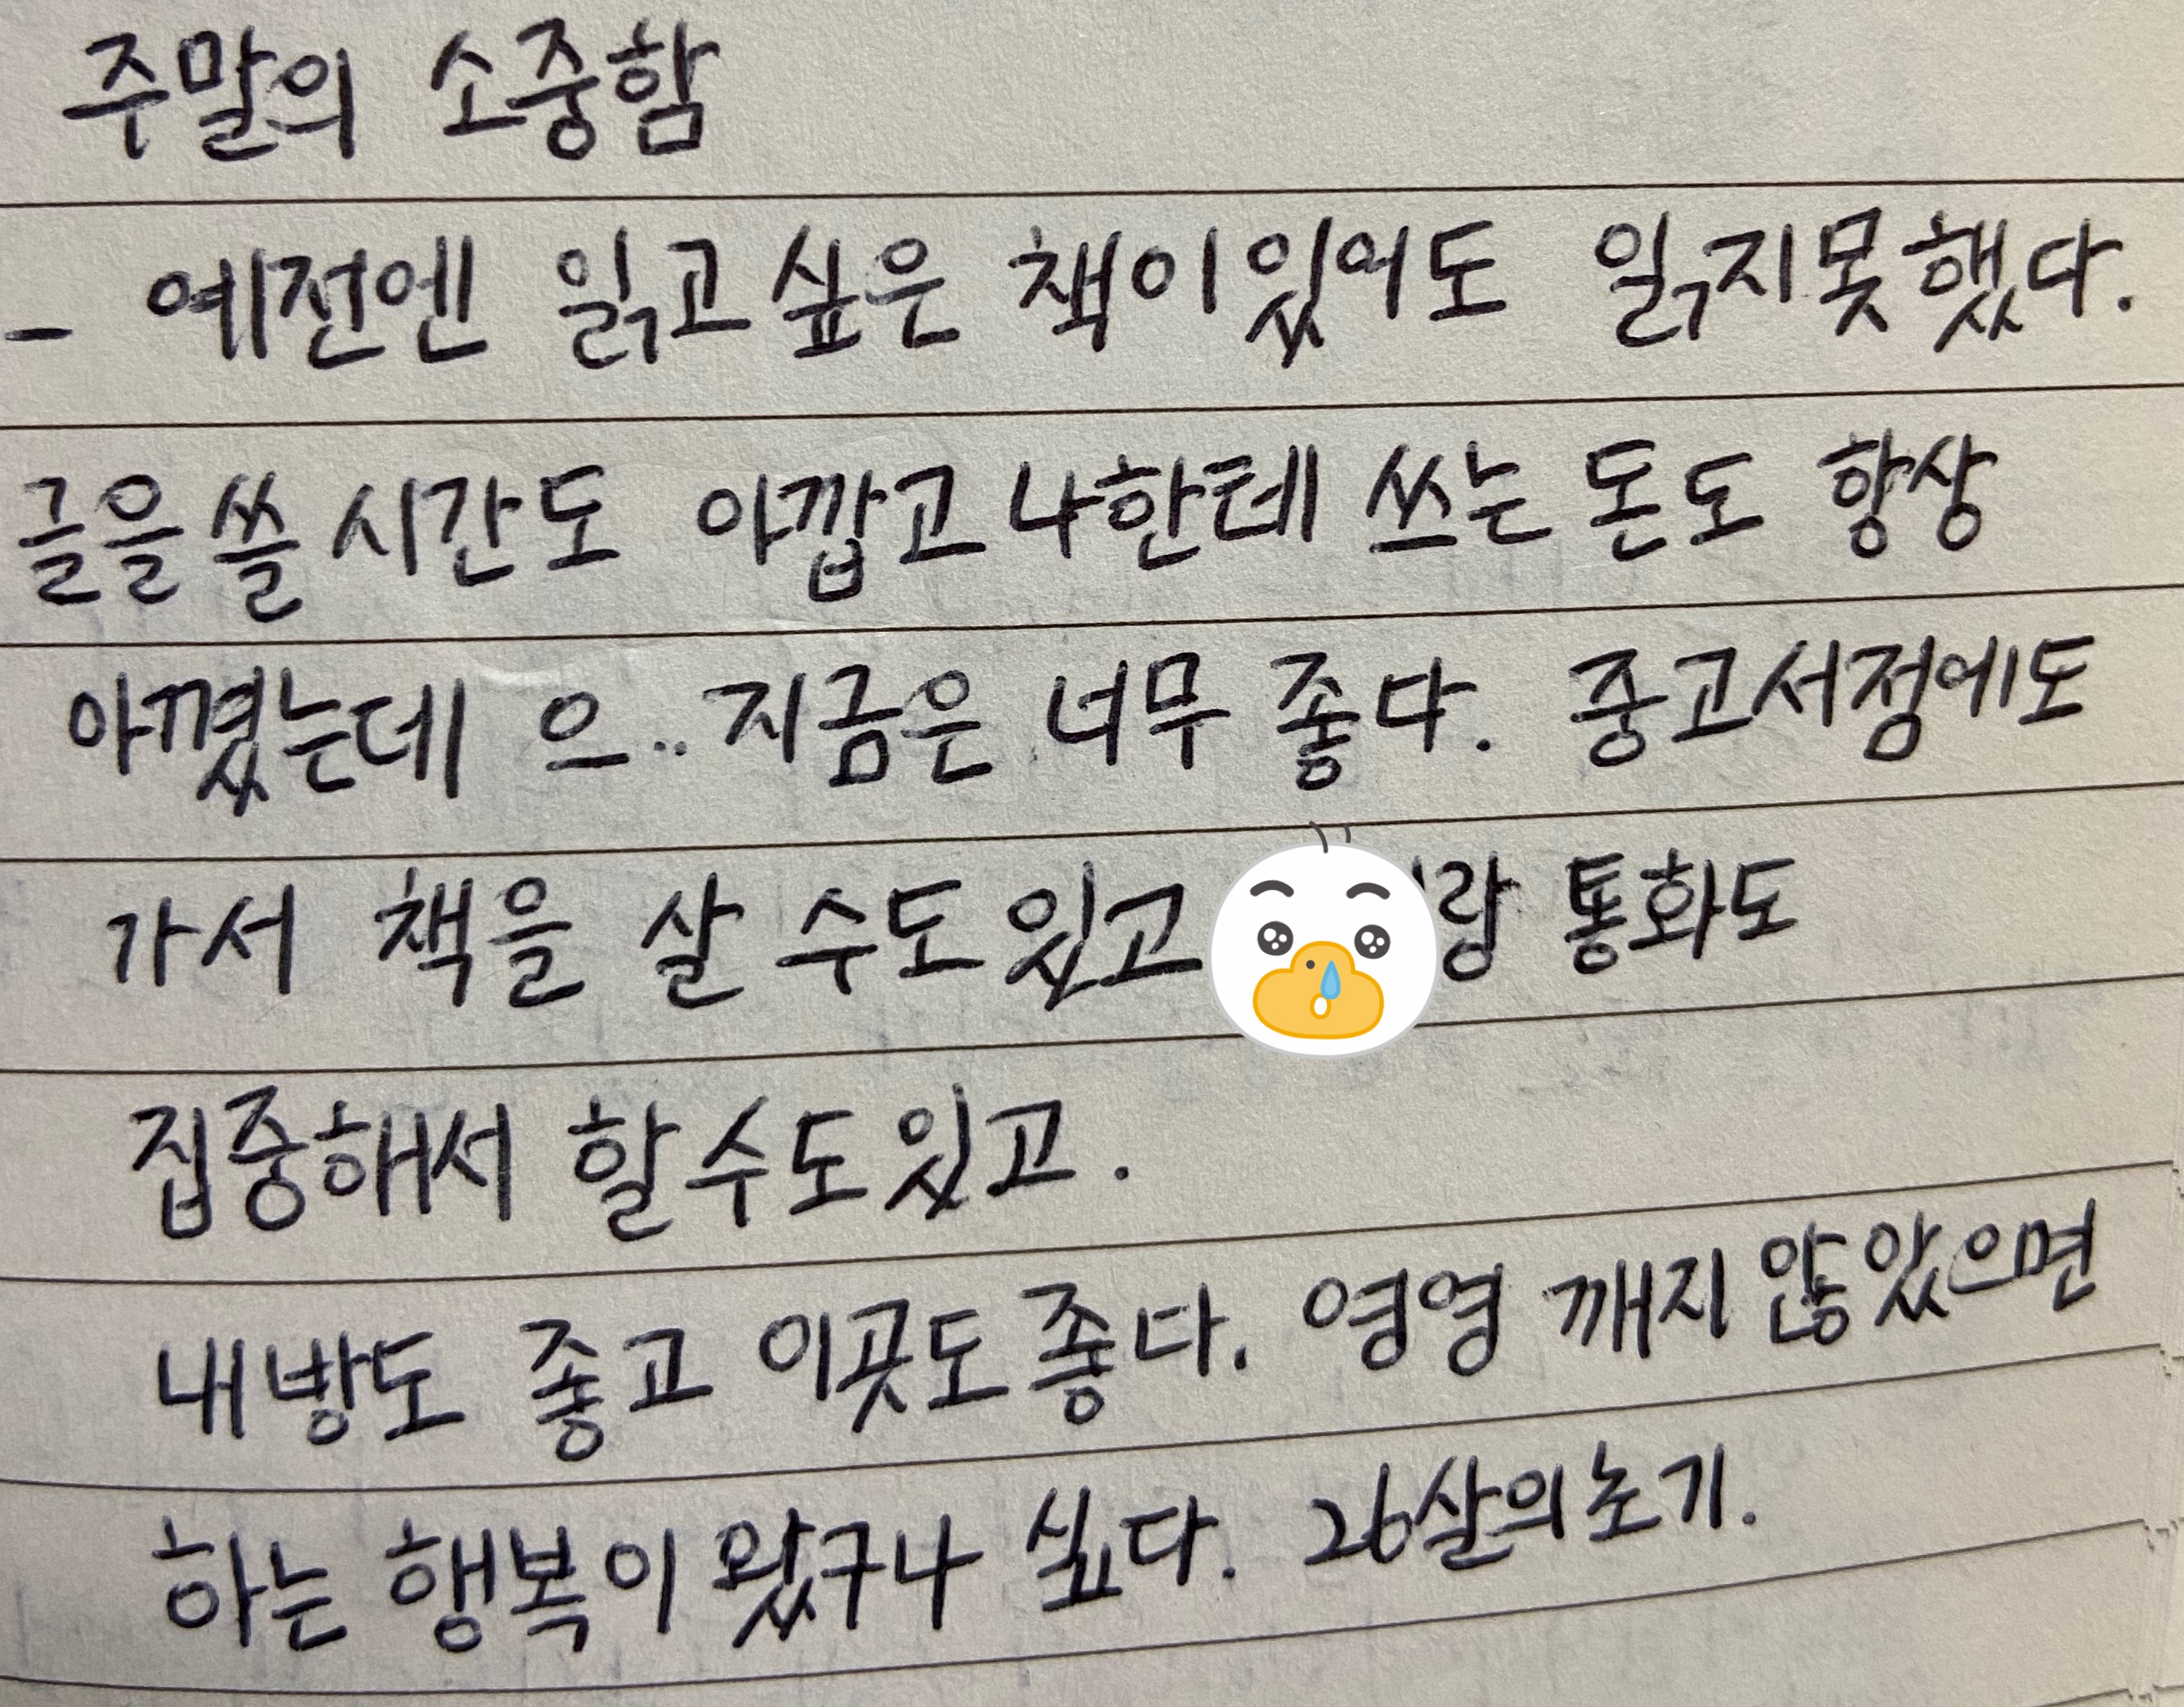 주말의 소중함
- 예전엔 읽고싶은 책이있어도 읽지못했다.
글을 쓸 시간도 아깝고 나한테 쓰는 돈도 항상
아꼈는데 으.. 지금은 너무 좋다. 중고서점에도
가서 책을 살 수도있고 랑 통화도
집중해서 할수도있고.
내방도 좋고 이곳도좋다. 영영 깨지 않았으면
하는 행복이 왔구나 싶다. 26살의초기.